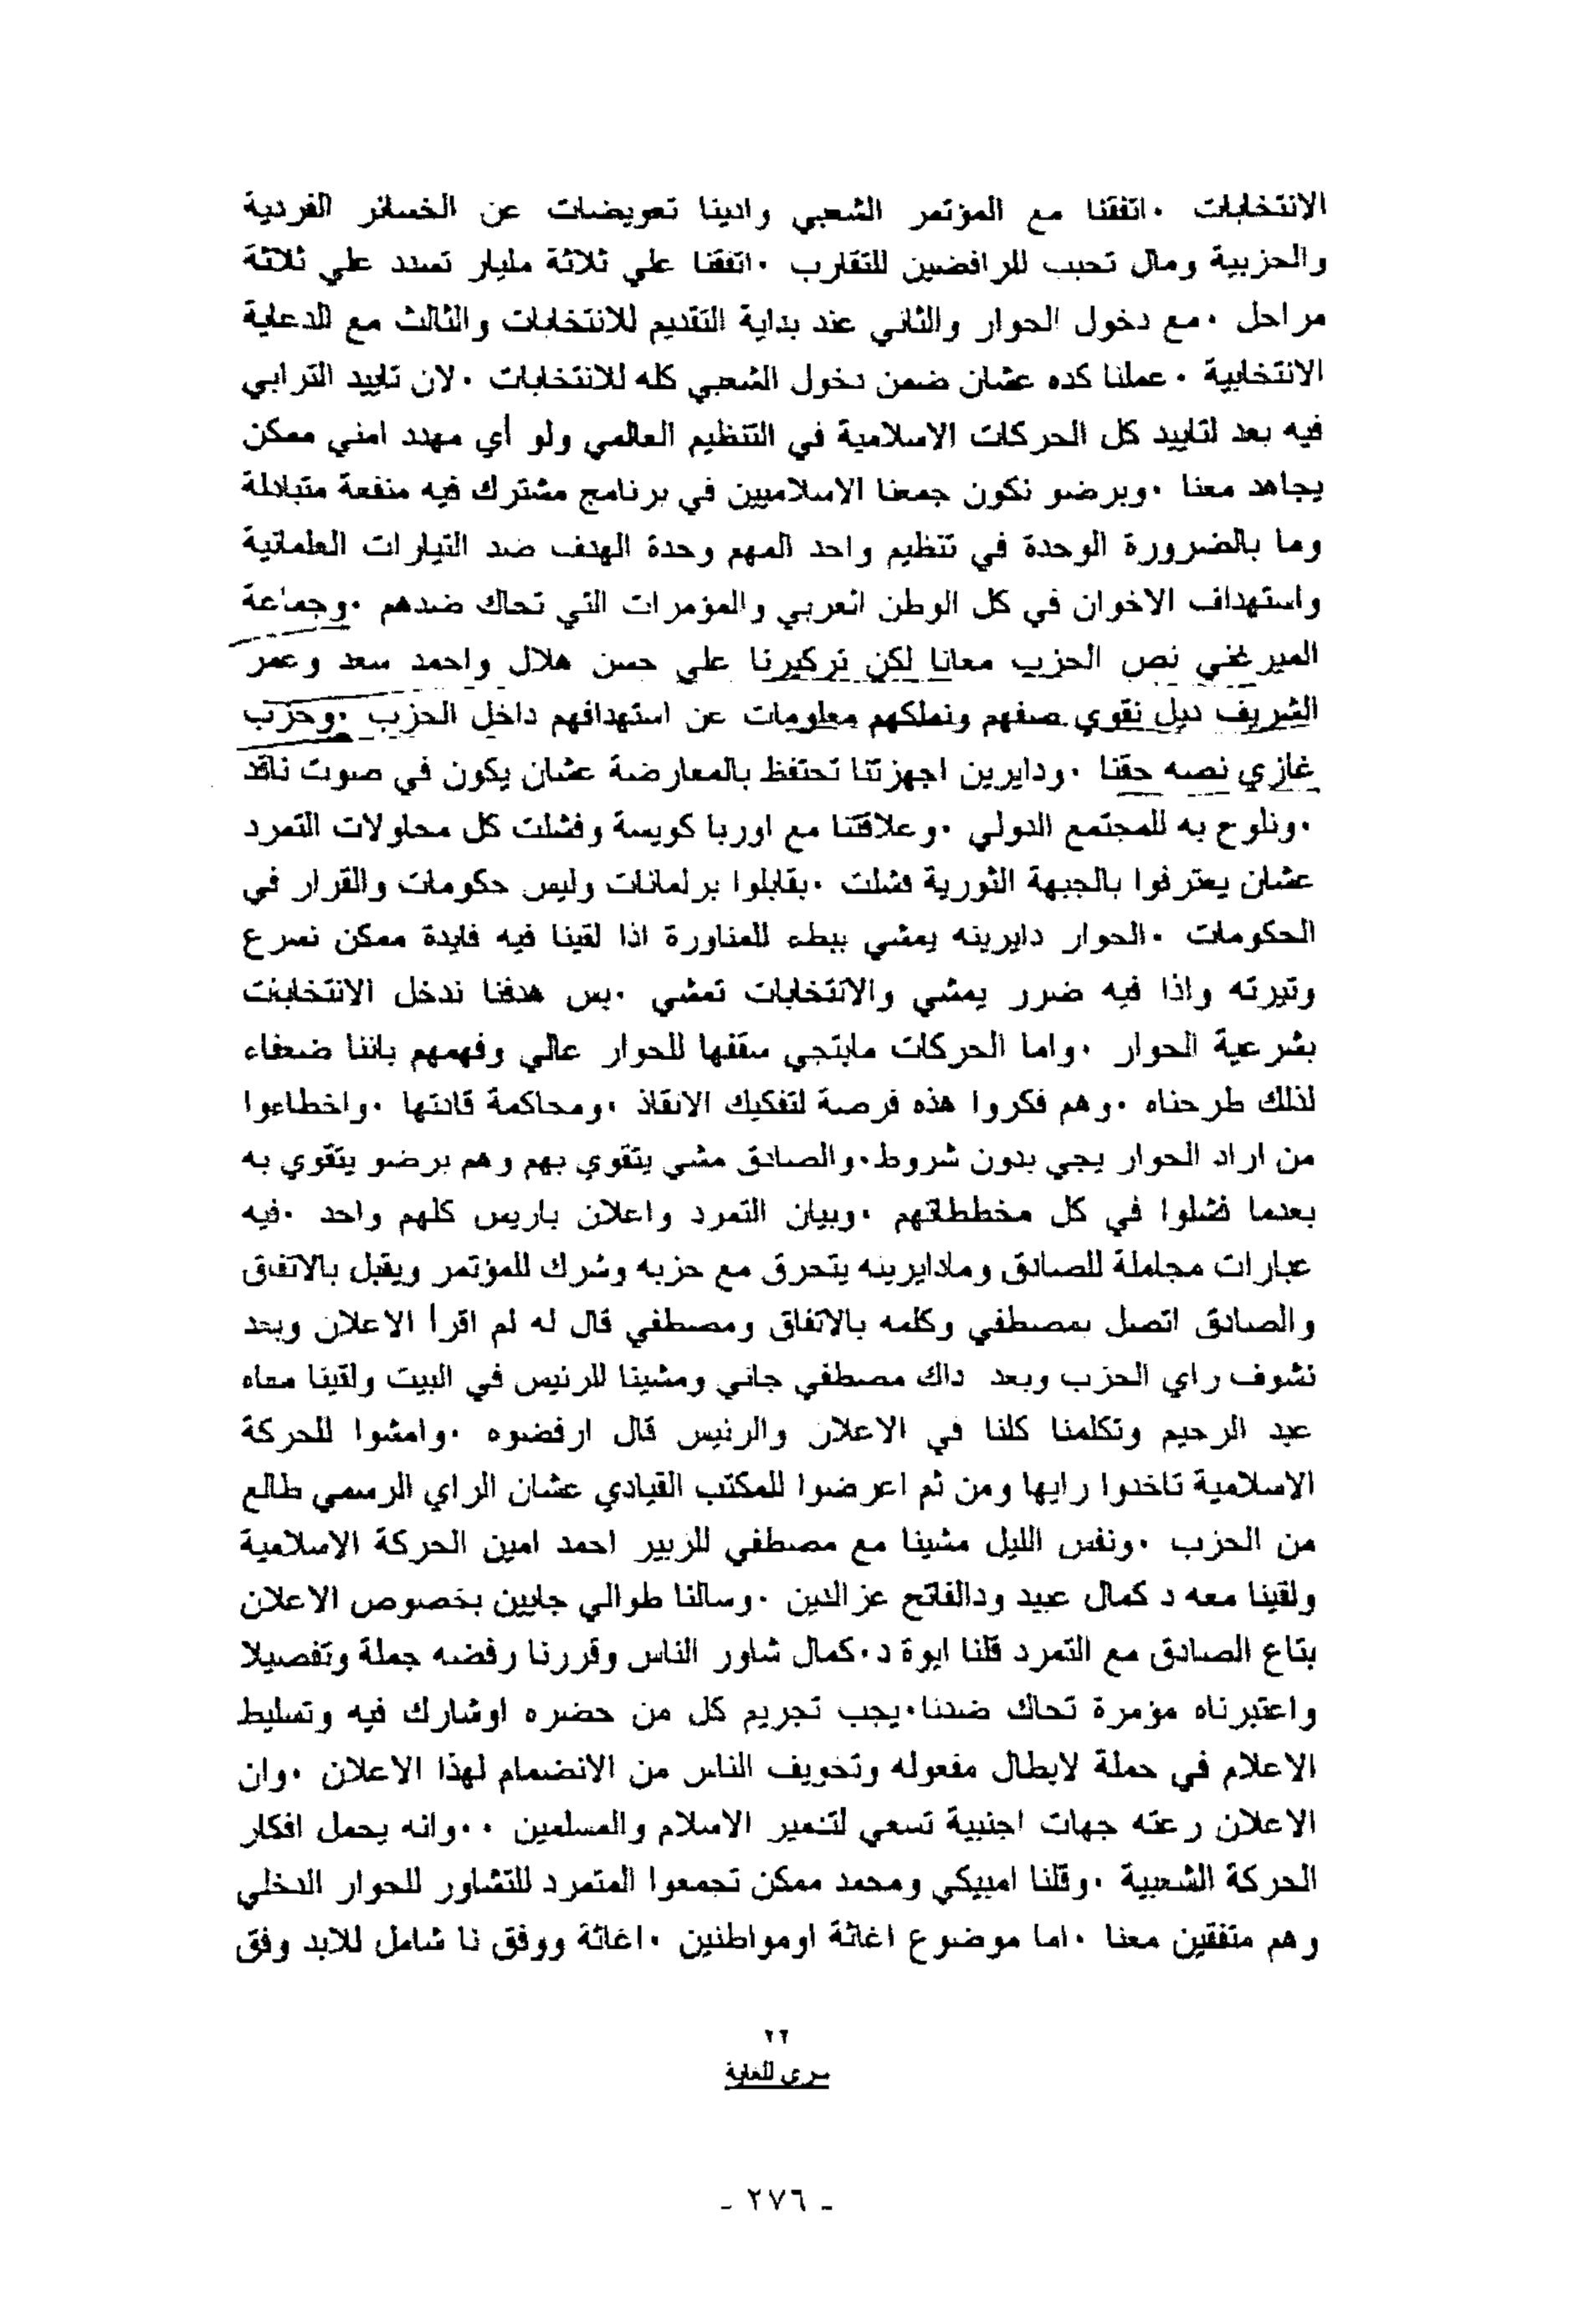 الانتخابات ٠اتفقنا مع المؤتمر الشعبي وادينا تعويضات عن الخسائر الفردية
والحزبية ومال تحبب للرافضين للتقارب ٠اتفقنا علي ثلاثة مليار تسدد علي ثلاثة
مراحل ٠مع دخول الحوار والثاني عند بداية التقديم للانتخابات والثالث مع الدعاية
الانتخابية ٠عملنا كده عشان ضمن دخول الشعبي كله للانتخابات ٠لان تاييد الترابي
فيه بعد لتاييد كل الحركات الاسلامية في التنظيم العالمي ولو أي مهدد امني ممكن
يجاهد معنا ٠وبرضو نكون جمعنا الاسلاميين في برنامج مشترك فيه منفعة متبادلة
وما بالضرورة الوحدة في تنظيم واحد المهم وحدة الهدف ضد التيارات العلمانية
واستهداف الاخوان في كل الوطن العربي والمؤمرات التي تحاك ضدهم ٠وجماعة
الميرغني نص الحزب معانا لكن تركيزنا علي حسن هلال واحمد سعد وعمر
الشريف ديل نقوي صفهم ونملكهم معلومات عن استهدافهم داخل الحزب ٠وحزب
غازي نصه حقنا ٠ودايرين اجهزتنا تحتفظ بالمعارضة عشان يكون في صوت ناقد
٠ونلوح به للمجتمع الدولي ٠وعلاقتنا مع اوربا كويسة وفشلت كل محاولات التمرد
عشان يعترفوا بالجبهة الثورية فشلت ٠بقابلوا برلمانات وليس حكومات والقرار في
الحكومات ٠الحوار دايرينه يمشي ببطء للمناورة اذا لقينا فيه فايدة ممكن نسرع
وتيرته واذا فيه ضرر يمشي والانتخابات تمشي ٠بس هدفنا ندخل الانتخابات
بشرعية الحوار ٠واما الحركات مابتجي سقفها للحوار عالي وفهمهم باننا ضعفاء
لذلك طرحناه ٠وهم فكروا هذه فرصة لتفكيك الانقاذ ٠ومحاكمة قادتها ٠واخطاءوا
من اراد الحوار يجي بدون شروط٠والصادق مشي يتقوي بهم وهم برضو يتقوي به
بعدما فشلوا في كل مخططاتهم ٠وبيان التمرد واعلان باريس كلهم واحد ٠فيه
عبارات مجاملة للصادق ومادايرينه يتحرق مع حزبه وشرك للمؤتمر ويقبل بالاتفاق
والصادق اتصل بمصطفي وكلمه بالاتفاق ومصطفي قال له لم اقرأ الاعلان وبعد
نشوف راي الحزب وبعد داك مصطفي جاني ومشينا للرئيس في البيت ولقينا معاه
عبد الرحيم وتكلمنا كلنا في الاعلان والرئيس قال ارفضوه ٠وامشوا للحركة
الاسلامية تاخدوا رايها ومن ثم اعرضوا للمكتب القيادي عشان الراي الرسمي طالع
من الحزب ٠ونفس الليل مشينا مع مصطفي للزبير احمد امين الحركة الاسلامية
ولقينا معه د كمال عبيد ودالفاتح عزالدين ٠وسالنا طوالي جايين بخصوص الاعلان
بتاع الصادق مع التمرد قلنا ايوة د٠كمال شاور الناس وقررنا رفضه جملة وتفصيلا
واعتبرناه مؤمرة تحاك ضدنا٠يجب تجريم كل من حضره اوشارك فيه وتسليط
الاعلام في حملة لابطال مفعوله وتخويف الناس من الانضمام لهذا الاعلان ٠وان
الاعلان رعته جهات اجنبية تسعي لتدمير الاسلام والمسلمين ٠٠وانه يحمل افكار
الحركة الشعبية ٠وقلنا امبيكي ومحمد ممكن تجمعوا المتمرد للتشاور للحوار الدخلي
وهم متفقين معنا ٠اما موضوع اغاثة اومواطنين ٠اغاثة ووفق نا شامل للابد وفق
٢٢
سري للغاية
- ٢٧٦ -